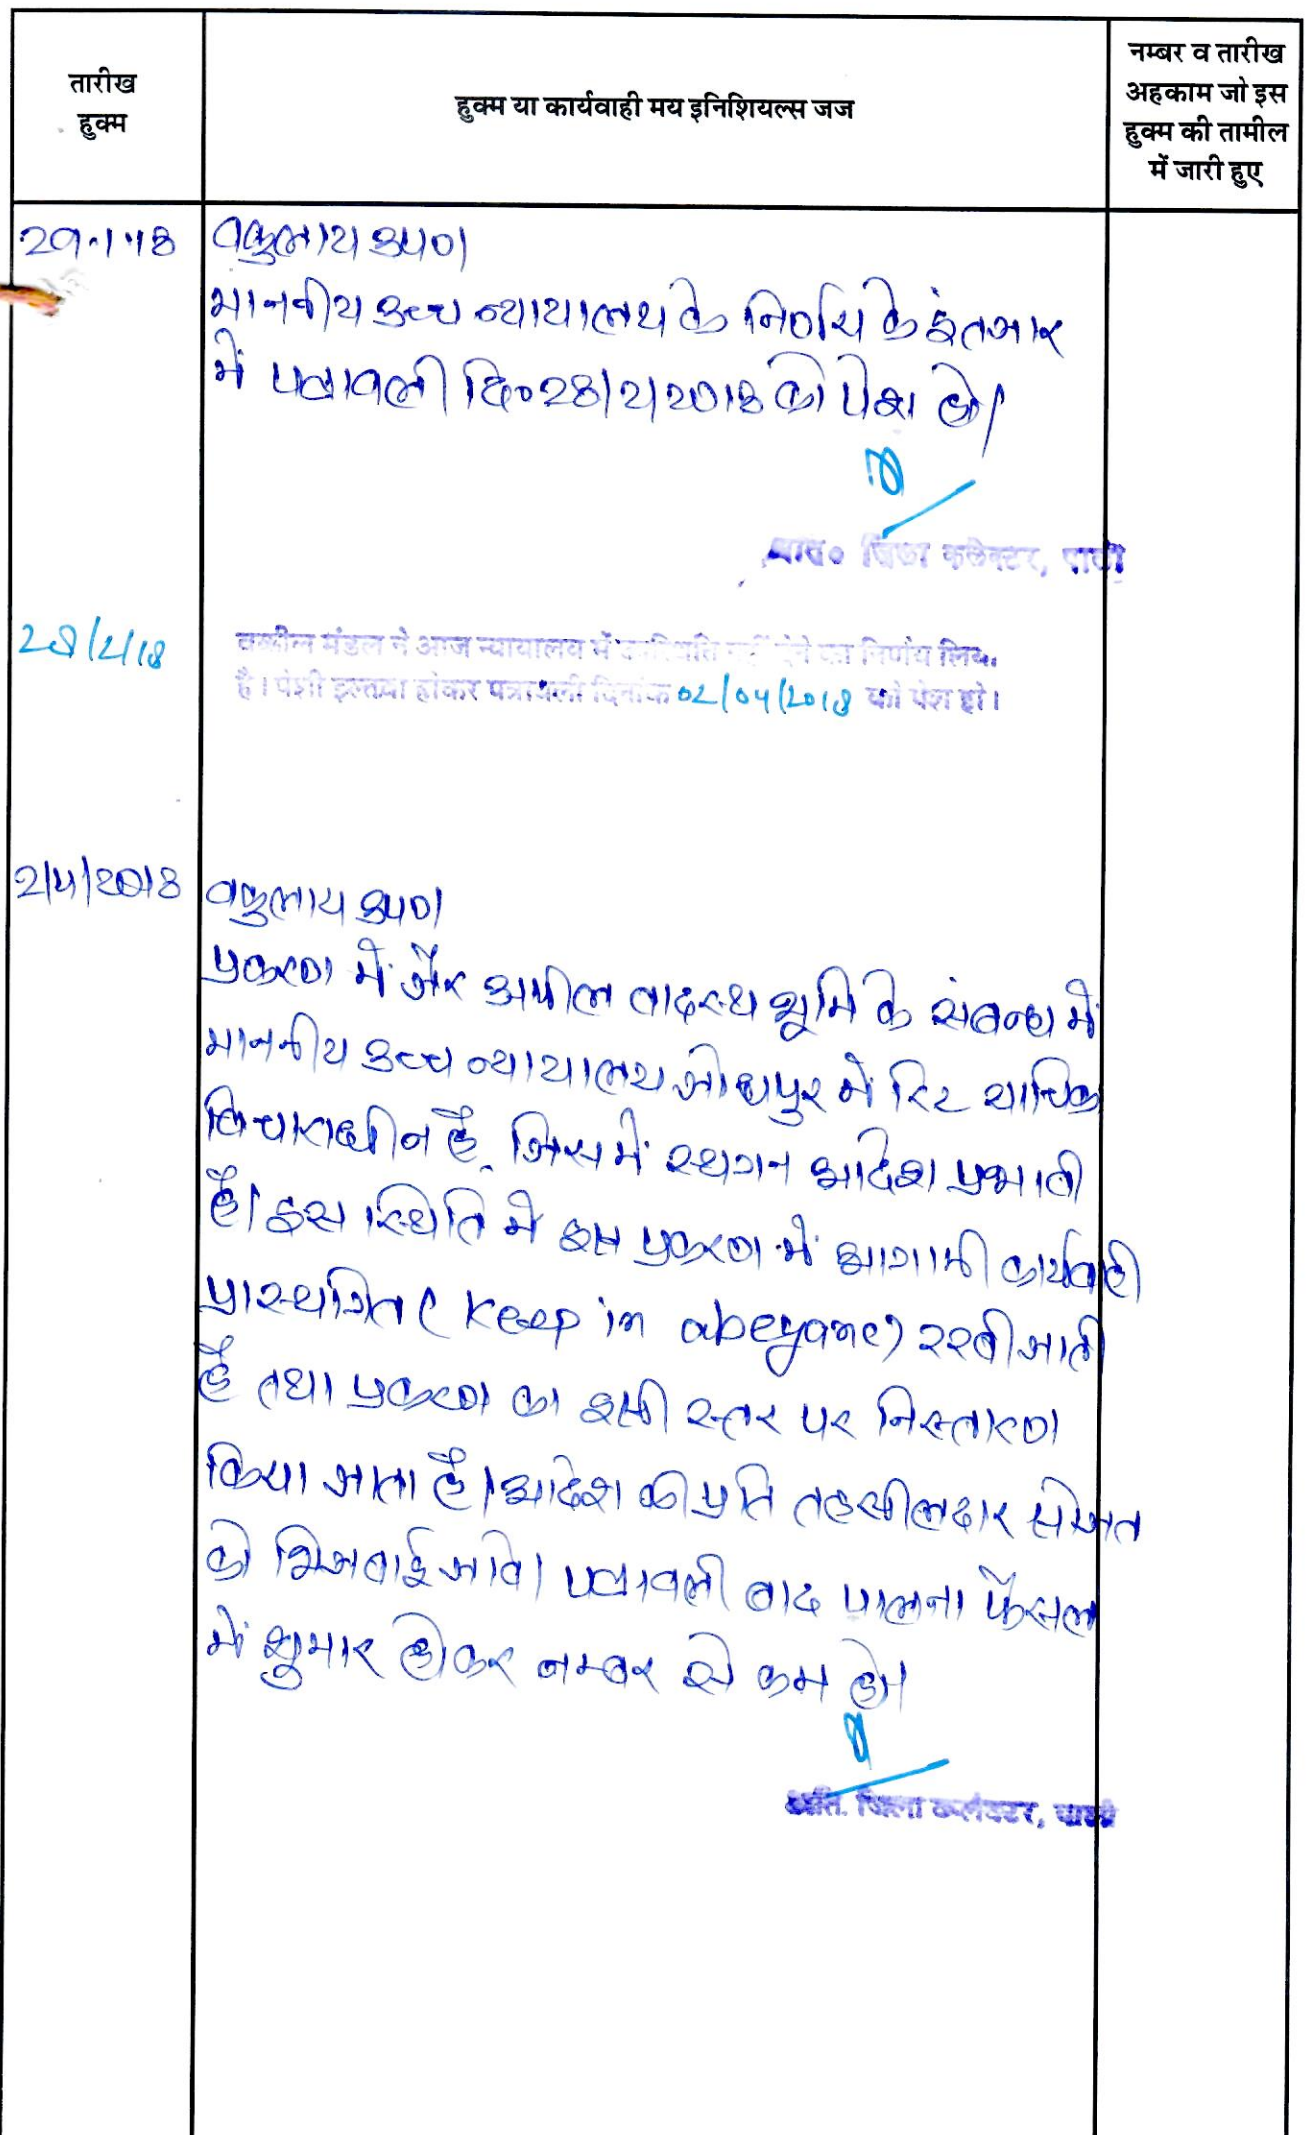 तारीख
हुक्म
हुक्म या कार्यवाही मय इनिशियल्स जज
नम्बर व तारीख
अहकाम जो इस
हुक्म की तामील
में जारी हुए
29.1.18
वकुलाय उपण।
माननीय उच्च न्यायालय के निर्णय के इंतजार
में पत्रावली दि० 28/2/2018 को पेश हो।
अति० जिला कलेक्टर, पाली
28/2/18
वकील मंडल ने आज न्यायालय में उपस्थिति नहीं देने का निर्णय लिया
है। पेशी इल्तवा होकर पत्रावली दिनांक 02/04/2018 को पेश हो।
2/4/2018
वकुलाय उपण।
प्रकरण में जैर अपील वादस्थ भूमि के संबन्ध में
माननीय उच्च न्यायालय जोधपुर में रिट याचिका
विचाराधीन है, जिसमें स्थगन आदेश प्रभावी
है। इस स्थिति में इस प्रकरण में आगामी कार्यवाही
प्रास्थगित ( keep in abeyance) रखी जाती
है तथा प्रकरण का इसी स्तर पर निस्तारण
किया जाता है। आदेश की प्रति तहसीलदार सोजत
को भिजवाई जावे। पत्रावली बाद पालना फैसल
में शुमार होकर नम्बर से कम हो।
अति. जिला कलेक्टर, पाली